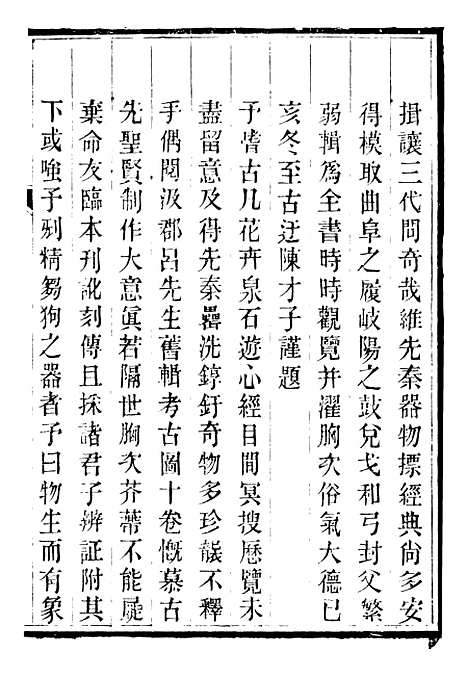 揖讓三代問奇哉維先秦器物摽經典尙多安
得模取曲阜之履岐陽之鼓兌戈和弓封父繁
弱輯爲全書時時觀覽并濯胸次俗氣大德已
亥冬至古迂陳才子謹題
予嗜古凡花卉泉石遊心經目間冥搜歷覽未
盡留意及得先秦罍洗錞釪奇物多珍襲不釋
手偶閱汲郡呂先生舊輯考古圖十卷慨慕古
先聖賢制作大意眞若隔世胸次芥蔕不能屣
棄命友臨本刊訛刻傳且採諸君子辨証附其
下或嗤予剜精芻狗之器者予曰物生而有象